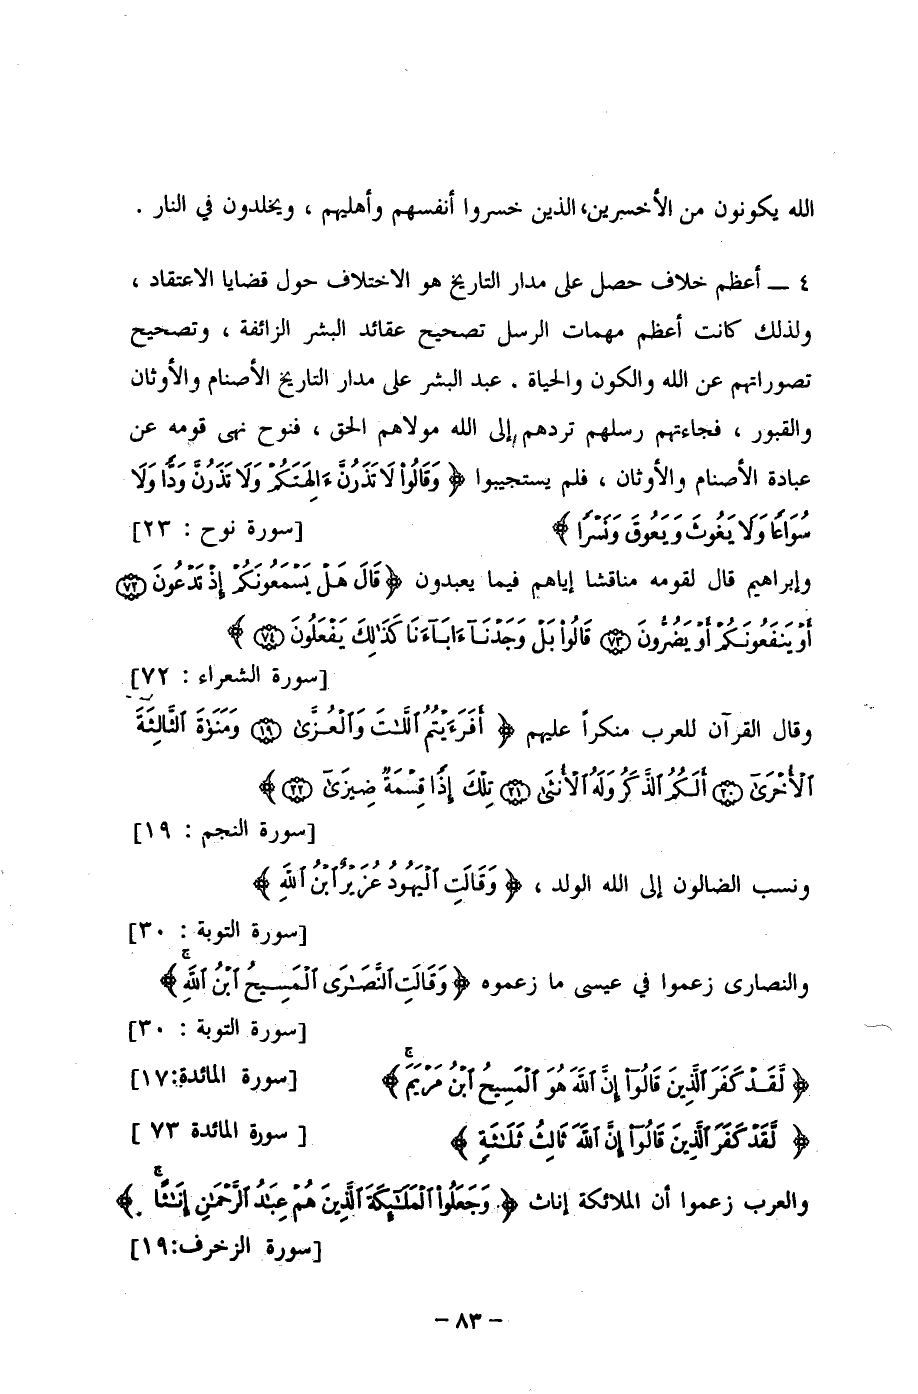 الله يكونون من الأخسرين، الذين خسروا أنفسهم وأهليهم ، ويخلدون في النار .
٤ ــ أعظم خلاف حصل على مدار التاريخ هو الاختلاف حول قضايا الاعتقاد ،
ولذلك كانت أعظم مهمات الرسل تصحيح عقائد البشر الزائفة ، وتصحيح
تصوراتهم عن الله والكون والحياة . عبد البشر على مدار التاريخ الأصنام والأوثان
والقبور ، فجاءتهم رسلهم تردهم إلى الله مولاهم الحق ، فنوح نهى قومه عن
عبادة الأصنام والأوثان ، فلم يستجيبوا ﴿ وَقَالُوا۟ لَا تَذَرُنَّ ءَالِهَتَكُمْ وَلَا تَذَرُنَّ وَدًّا وَلَا
سُوَاعًا وَلَا يَغُوثَ وَيَعُوقَ وَنَسْرًا ﴾ [سورة نوح : ٢٣]
وإبراهيم قال لقومه مناقشا إياهم فيما يعبدون ﴿ قَالَ هَلْ يَسْمَعُونَكُمْ إِذْ تَدْعُونَ ٧٢
أَوْ يَنفَعُونَكُمْ أَوْ يَضُرُّونَ ٧٣ قَالُوا۟ بَلْ وَجَدْنَآ ءَابَآءَنَا كَذَٰلِكَ يَفْعَلُونَ ٧٤ ﴾
[سورة الشعراء : ٧٢]
وقال القرآن للعرب منكراً عليهم ﴿ أَفَرَءَيْتُمُ ٱللَّٰتَ وَٱلْعُزَّىٰ ١٩ وَمَنَوٰةَ ٱلثَّالِثَةَ
ٱلْأُخْرَىٰٓ ٢٠ أَلَكُمُ ٱلذَّكَرُ وَلَهُ ٱلْأُنثَىٰ ٢١ تِلْكَ إِذًا قِسْمَةٌ ضِيزَىٰٓ ٢٢ ﴾
[سورة النجم : ١٩]
ونسب الضالون إلى الله الولد ، ﴿ وَقَالَتِ ٱلْيَهُودُ عُزَيْرٌ ٱبْنُ ٱللَّهِ ﴾
[سورة التوبة : ٣٠]
والنصارى زعموا في عيسى ما زعموه ﴿ وَقَالَتِ ٱلنَّصَٰرَى ٱلْمَسِيحُ ٱبْنُ ٱللَّهِۚ ﴾
[سورة التوبة : ٣٠]
﴿ لَّقَدْ كَفَرَ ٱلَّذِينَ قَالُوٓا۟ إِنَّ ٱللَّهَ هُوَ ٱلْمَسِيحُ ٱبْنُ مَرْيَمَۚ ﴾ [سورة المائدة:١٧]
﴿ لَّقَدْ كَفَرَ ٱلَّذِينَ قَالُوٓا۟ إِنَّ ٱللَّهَ ثَالِثُ ثَلَٰثَةٍ ﴾ [ سورة المائدة ٧٣ ]
والعرب زعموا أن الملائكة إناث ﴿ وَجَعَلُوا۟ ٱلْمَلَٰٓئِكَةَ ٱلَّذِينَ هُمْ عِبَٰدُ ٱلرَّحْمَٰنِ إِنَٰثًاۚ . ﴾
[سورة الزخرف:١٩]
– ٨٣ –